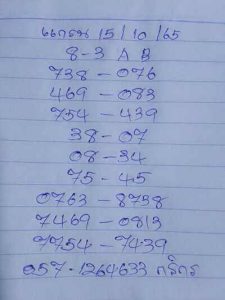 15/10/65
8-3 A B
738-076
469-083
754-439
38-07
08-34
75-45
0763-8738
7469-0813
7754-7439
057-1264633